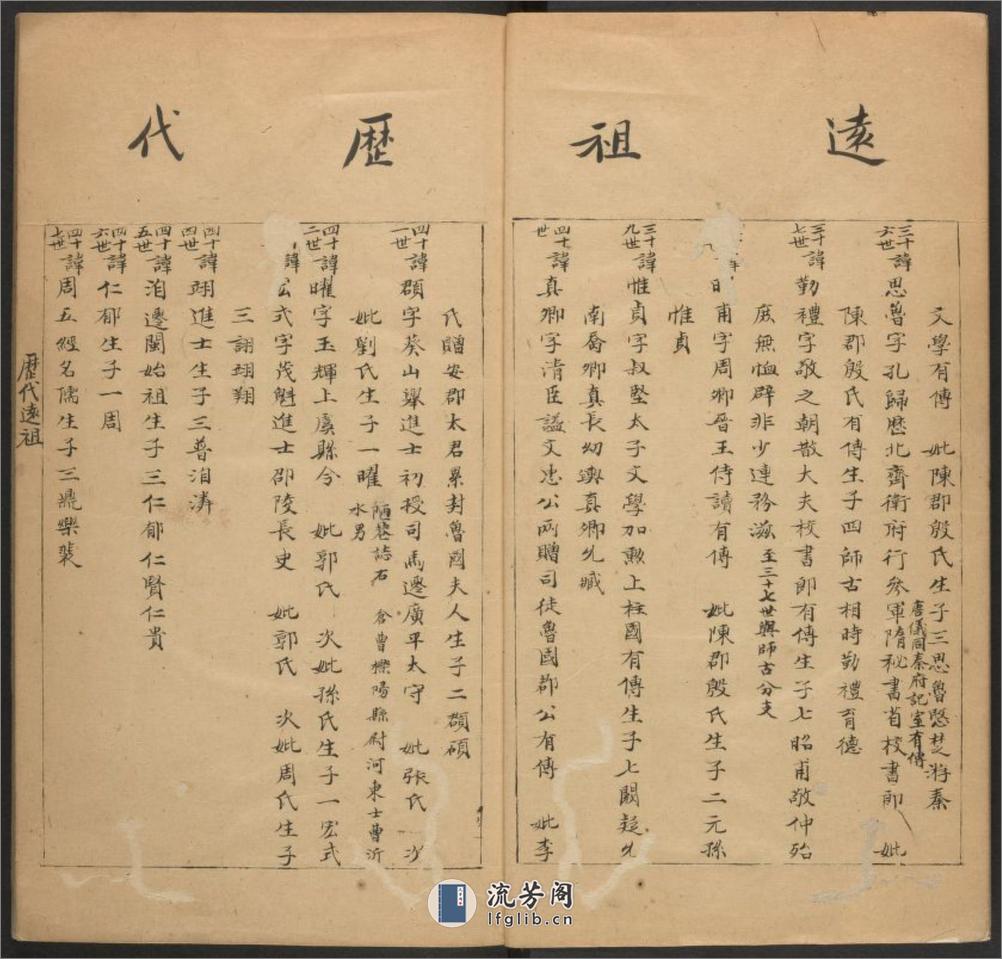 遠祖歷代
文學有傳 妣陳郡殷氏生子三思魯愍楚游秦
三十六世諱思魯字孔歸歷北齊衛府行參軍隋秘書省校書郎 唐儀同秦府記室有傳 妣
陳郡殷氏有傳生子四師古相時勤禮育德
三十七世諱勤禮字敬之朝散大夫校書郎有傳生子七昭甫敬仲殆
庶無恤辟非少連務滋 至三十七世與師古分支
甫字周卿晉王侍讀有傳 妣陳郡殷氏生子二元孫
惟貞
三十九世諱惟貞字叔堅太子文學加勳上柱國有傳生子七闕疑允
南喬卿真長幼輿真卿允臧
四十世諱真卿字清臣謚文忠公兩贈司徒魯國郡公有傳 妣李
氏贈安郡太君累封魯國夫人生子二頵碩
四十一世諱頵字葵山舉進士初授司馬遷廣平太守 妣張氏 次
妣劉氏生子一曜 陋巷誌石 倉曹櫟陽縣尉河東士曹沂水男
四十二世諱曜字玉輝上虞縣令 妣郭氏 次妣孫氏生子一宏式
諱宏式字茂魁進士邵陵長史 妣郭氏 次妣周氏生子
三詡翊翔
四十四世諱翊進士生子三普洎濤
四十五世諱洎遷閩始祖生子三仁郁仁賢仁貴
四十六世諱仁郁生子一周
四十七世諱周五經名儒生子三鼎樂裴
歷代遠祖
流芳阁
lfglib.cn